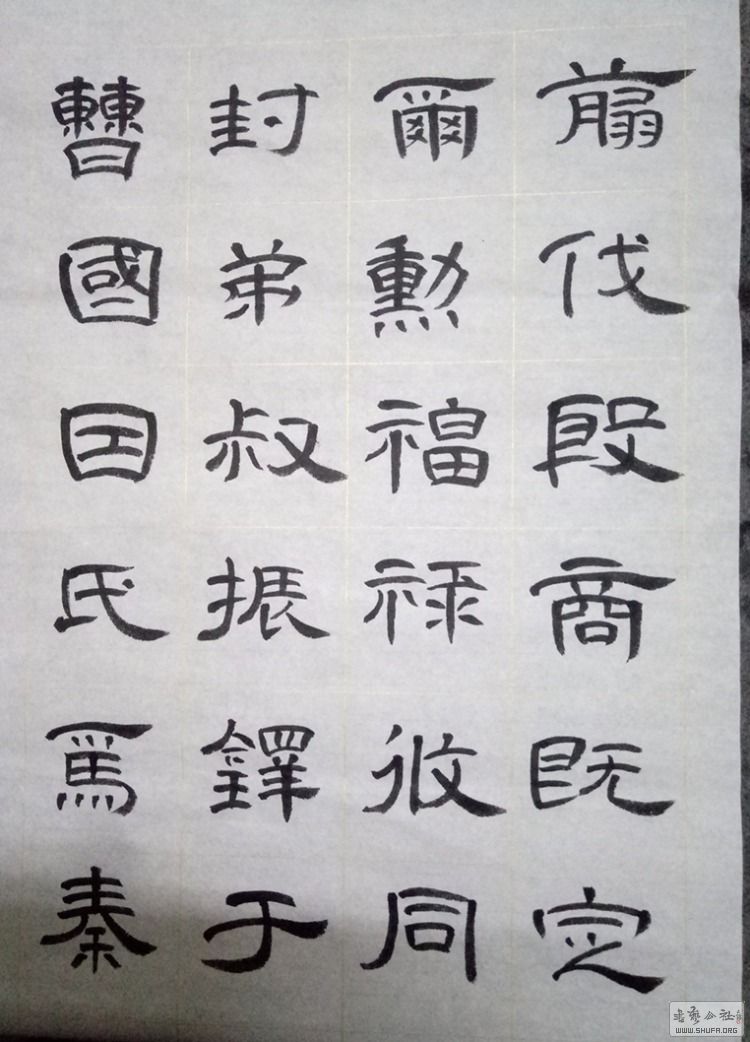 翦伐殷商既定
爾勳福禄攸同
封弟叔振鐸于
曹國因氏焉秦
WWW.SHUFA.ORG